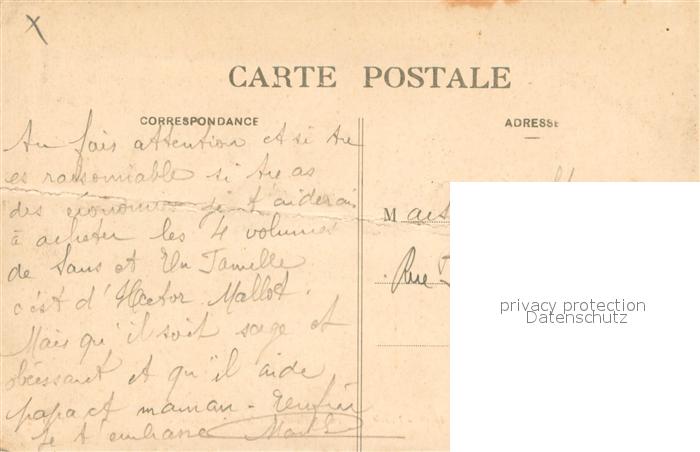 CARTE POSTALE
CORRESPONDANCE
ADRESSE
Tu fais attention et si tu
es raisonnable si tu as
des économies je t'aiderais
à acheter les 4 volumes
de Sans et En Famille
c'est d'Hector Mallot.
Mais qu'il soit sage et
obéissant et qu'il aide
papa et maman - Enfin
je t'embrasse
M
Rue
privacy protection
Datenschutz